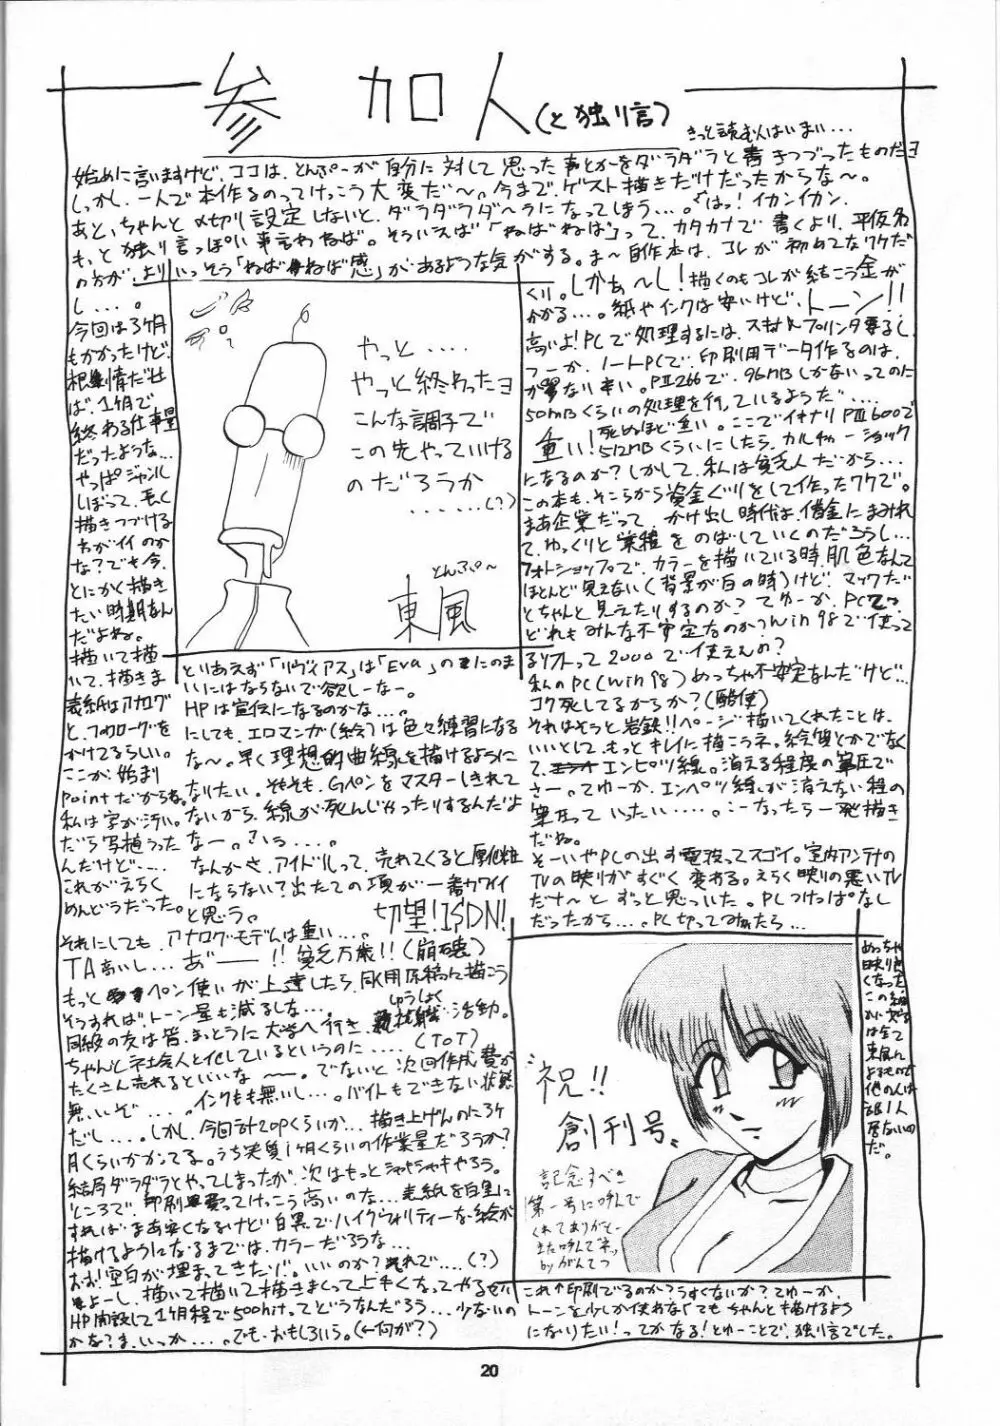 参加人(と独り言)
きっと読む人はいまい...
始めに言いますけど、ココは、とんぷーが自分に対して思った事とかをダラダラと書きつづったものだヨ
しかし、一人で本作るのってけっこう大変だ〜。今まで、ゲスト描きだけだったからな〜。
あと、ちゃんと〆切り設定しないと、ダラダラダ〜ラになってしまう...。はっ!イカンイカン、
もっと独り言っぽい事言わねば。そういえば「ねばねば」って、カタカナで書くより、平仮名
の方が、よりいっそう「ねばねば感」があるような気がする。ま〜自作本は、コレが初めてなワケだ
し...。
今回は3ヶ月
もかかったけど、
根性情だせ
ば、1ヶ月で
終わる仕事量
だったような...
やっぱジャンル
しぼって、長く
描きつづける
方がイイのか
な?でも今、
とにかく描き
たい時期なん
だよね。
描いて描
いて、描きま
表紙はアナログ
と、フォトログを
かけてるらしい。
ここが、始まり
pointだからね。
私は字が汚い。
だら写植うった
んだけど....
これがえらく
めんどうだった。
やっと....
やっと終わったヨ
こんな調子で
この先やっていける
のだろうか
......(?)
とんぷ〜
東風
くり。しかぁ〜し!描くのもコレが結こう金が
かかる...。紙やインクは安いけど、トーン!!
高いよ!PCで処理するには、スキャナ、プリンタ要るし、
つーか、ノートPCで、印刷用データ作るのは、
が異ない辛い。PⅡ266で、96MBしかないってのに
50MBくらいの処理を行っているようだ....
死ぬほど重い。ここでイキナリPⅢ600で
重い!512MBくらいにしたら、カルチャーショック
になるのか?しかして、私は貧乏人だから...
この本も、そこらから資金ぐりをして作ったワケで。
まあ企業だって、かけ出し時代は、借金にまみれ
て、ゆっくりと業積をのばしていくのだろうし...
フォトショップで、カラーを描いている時、肌色なんて
ほとんど見えない(背景が白の時)けど、マックだ
とちゃんと見えたりするのか?てゆーか、PCって、
どれもみんな不安定なのか?win98で使って
るソフトって2000で使えんの?
私のPC(win98)めっちゃ不安定なんだけど...
コク死してるからか?(酷使)
それはそうと岩鉄!!ページ描いてくれたことは、
いいとして、もっとキレイに描こうネ。絵質とかでなく
て、エンピツ線。消える程度の筆圧で
さー。てゆーか、エンペツ線が消えない程の
筆圧っていったい.....。こーなったら一発描き
だね。
そーいやPCの出す電波ってスゴイ。室内アンテナの
TVの映りがすぐく変わる。えらく映りの悪いTV
だナ〜とずっと思っていた。PCつけっぱなし
だったから...。PC切ってみたら...
とりあえず「リヴァイアス」は「Eva」の二のま
いにはならないで欲しーなー。
HPは宣伝になるのかな...。
にしても、エロマンガ(絵)は色々練習になる
な〜。早く理想的曲線を描けるように
なりたい。そもそも、Gペンをマスターしきれて
ないから、線が死んじゃったりするんだよ
なー。さいぅ....。
なんかさ、アイドルって、売れてくると厚化粧
にならない?出たての頃が一番カワイイ
と思う。切望!ISDN!
それにしても、アナログ・モデムは重い...。
TA高いし...あ゛ー!!貧乏万歳!!(崩壊)
もっとペン使いが上達したら、同用原稿に描こう
そうすれば、トーン量も減るしな...
同級の友は皆、まっとうに大学へ行き、就職活動。
しゅうしょく
ちゃんと社会人と化しているというのに....(ToT)
たくさん売れるといいな〜。でないと、次回作成費が
無いぞ....。インクも無いし...。バイトもできない状態
だし....。しかし、今回計20Pくらいか...描き上げんのに3ヶ
月くらいかかってる。うち実質1ヶ月くらいの作業量だろうか?
結局ダラダラとやってしまったが、次はもっとシャキシャキやろう。
ところで、印刷費ってけっこう高いのな...表紙を白黒に
すればまあ安くなるけど、白黒でハイクウォリティーな絵が
描けるようになるまでは、カラーだろうな...
おお!空白が埋まってきたぞ。いいのか?それで...(?)
よーし、描いて描いて描きまくって上手くなってやるぜい
HP開設して1ヶ月程で500hitってどうなんだろう...少ないの
かな?ま、いっか...。でも・おもしろいら。(←何が?)
祝!!
創刊号、
記念すべき
第一号に呼んで
くれてありがとー
また呼んでネッ
byがんてつ
めっちゃ
映り良
くなった
は全て
東風に
よるもので
他の人は
部1人
居ないの
だ。
これ↑印刷でるのか?うすくないか?てゆーか、
トーンを少しか使わなくてもちゃんと描けるよう
になりたい!ってかなる!とゆーことで、独り言でした。
20